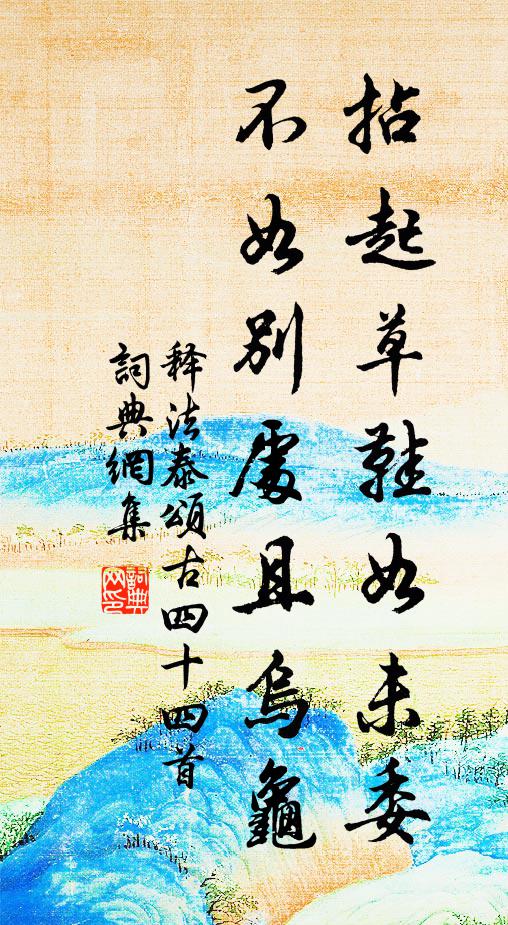 拈起草鞋如未委
不如別處且烏龜
释法泰頌古四十四首
詞典網集
詞典網印